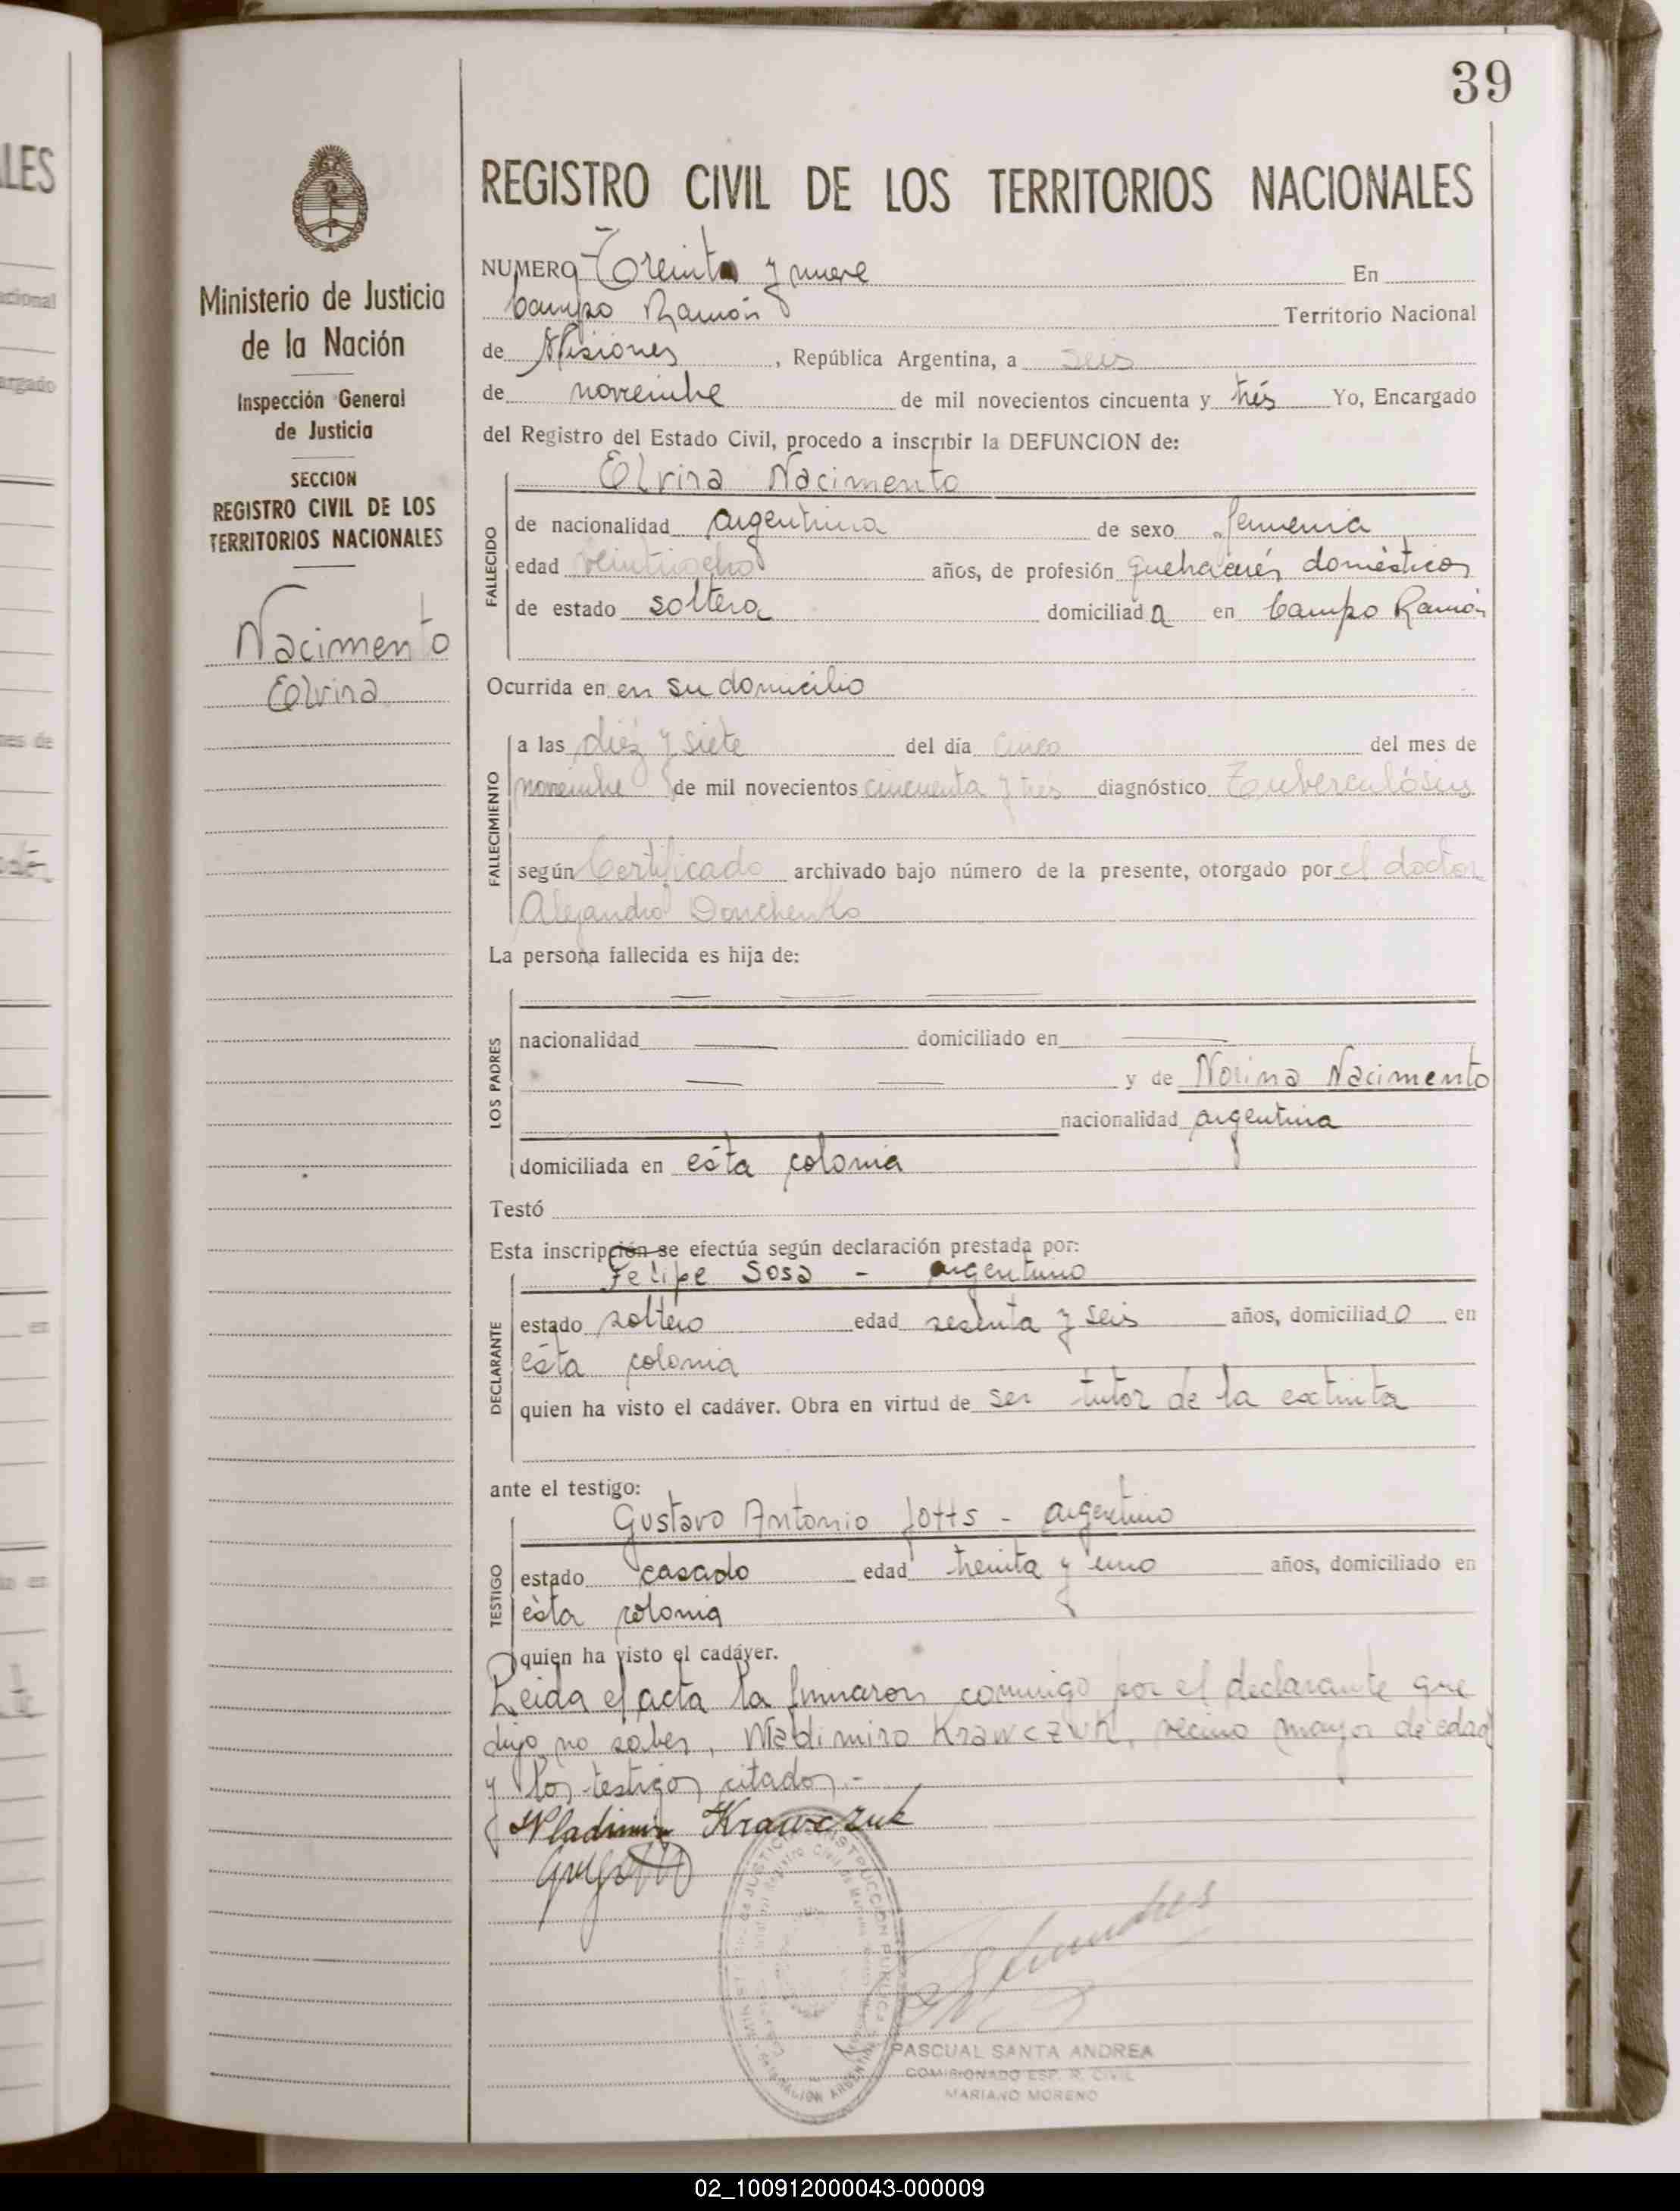 39
REGISTRO CIVIL DE LOS TERRITORIOS NACIONALES
Ministerio de Justicia
de la Nación
Inspección General
de Justicia
SECCION
REGISTRO CIVIL DE LOS
TERRITORIOS NACIONALES
Nacimento
Elvira
NUMERO Treinta y nueve En
Campo Ramón Territorio Nacional
de Misiones, República Argentina, a seis
de noviembre de mil novecientos cincuenta y trés Yo, Encargado
del Registro del Estado Civil, procedo a inscribir la DEFUNCION de:
Elvira Nacimento
FALLECIDO
de nacionalidad argentina de sexo femenia
edad veintiocho años, de profesión quehacerés domésticos
de estado soltera domiciliada en Campo Ramón
Ocurrida en en su domicilio
FALLECIMIENTO
a las diéz y siete del día cinco del mes de
noviembre de mil novecientos cincuenta y trés diagnóstico Tuberculósis
según Certificado archivado bajo número de la presente, otorgado por el doctor
Alejandro Donchenko
La persona fallecida es hija de:
LOS PADRES
nacionalidad domiciliado en
y de Norina Nacimento
nacionalidad argentina
domiciliada en ésta colonia
Testó
Esta inscripción se efectúa según declaración prestada por:
DECLARANTE
Felipe Sosa - argentino
estado soltero edad sesenta y seis años, domiciliado en
ésta colonia
quien ha visto el cadáver. Obra en virtud de ser tutor de la extinta
ante el testigo:
TESTIGO
Gustavo Antonio Jotts - argentino
estado casado edad treinta y uno años, domiciliado en
ésta colonia
quien ha visto el cadáver.
Leida el acta la firmaron conmigo por el declarante que
dijo no saber, Wladimiro Krawczuk, vecino mayor de edad
y los testigos citados.-
Wladimiro Krawczuk
PASCUAL SANTA ANDREA
COMISIONADO ESP. R. CIVIL
MARIANO MORENO
02_100912000043-000009